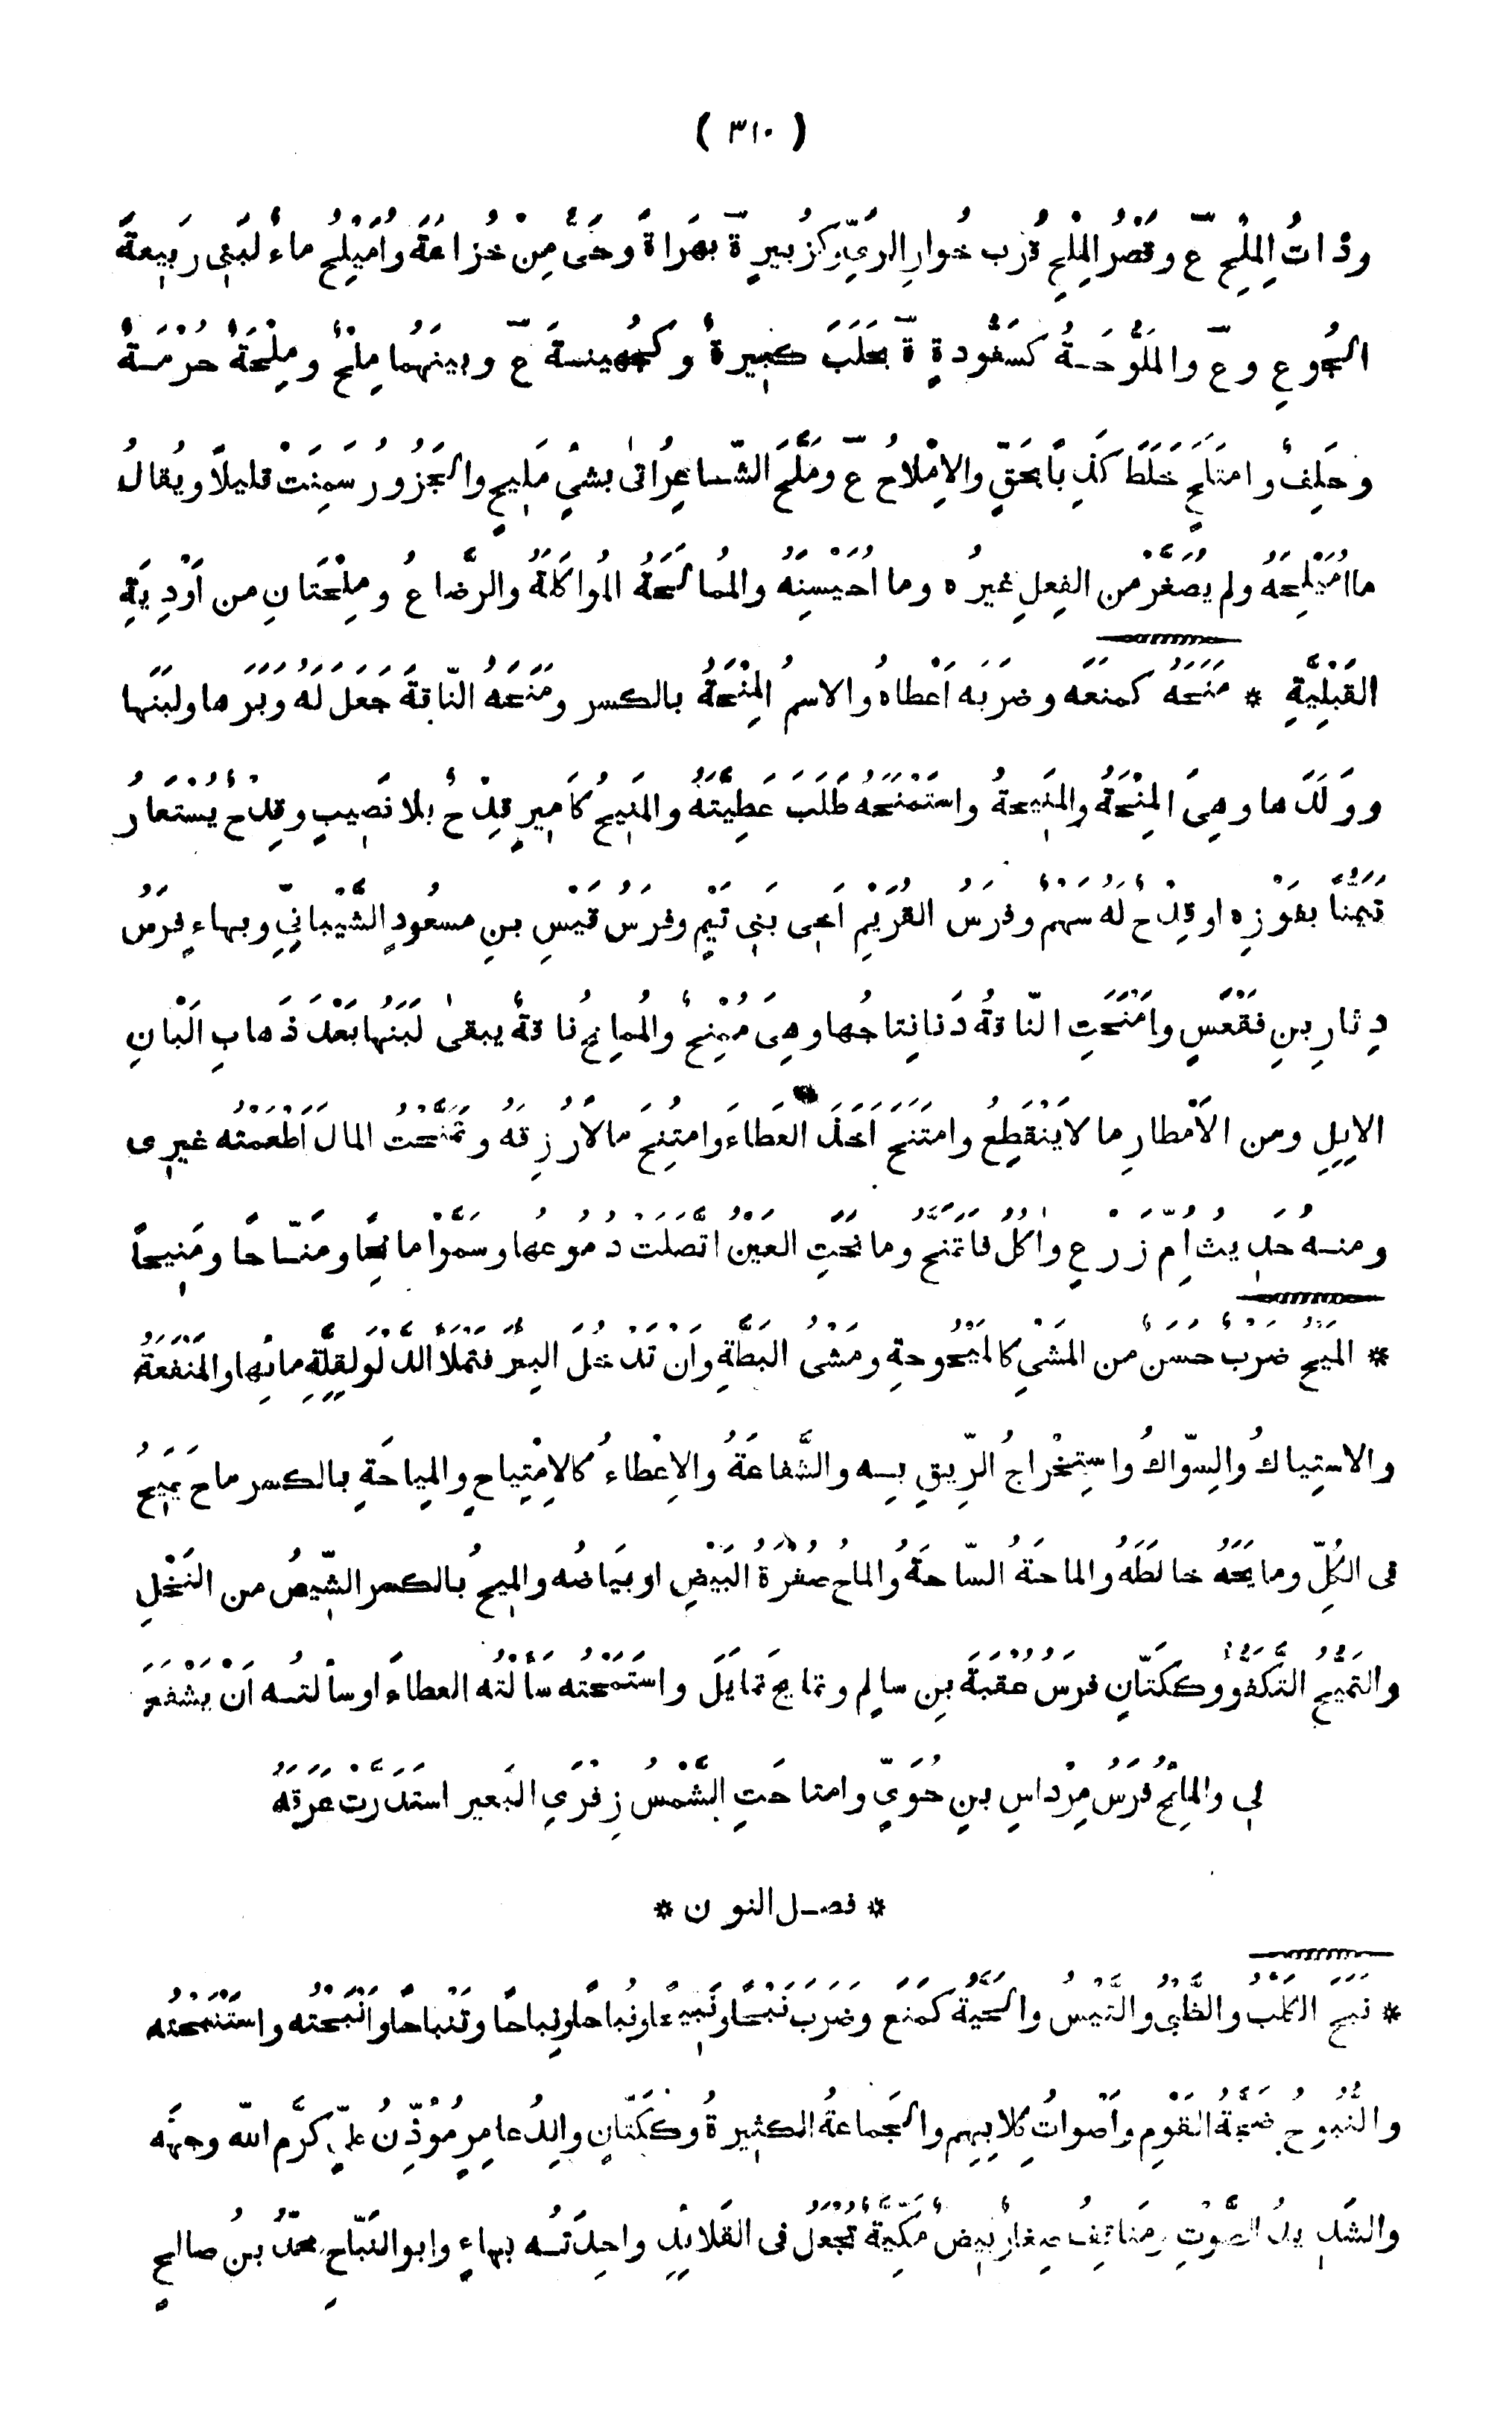 ( ٣١٠ )
وذَاتُ المِلْحِ ع وقَصْرُ المِلْحِ قُرْبَ خُوارِ الرَّيِّ وكزُبَيرٍ ة بهَراةَ وحَيٌّ مِنْ خُزاعَةَ وأُمَيْلِحُ ماءٌ لبَنِي رَبِيعَةَ
الجُوعِ وع والمَلُّوحَةُ كسَفُّودةٍ ة بحَلَبَ كبِيرةٌ وكجُهينةَ ع وبينَهُما مِلْحٌ ومِلْحَةٌ حُرْمَةٌ
وحَلِفٌ وامتَلَحَ خَلَطَ كَذِباً بحَقٍّ والاِمْلاحُ ع ومَلَّحَ الشّاعِرُ اتىٰ بشيْءٍ مَلِيحٍ والجَزُورُ سَمِنَتْ قليلاً ويُقالُ
ما اُمَيْلِحَهُ ولم يُصَغَّرْ من الفِعلِ غيرُه وما اُحَيْسِنَهُ والمُمالَحَةُ المُواكَلَةُ والرَّضاعُ ومِلْحَتانِ من اَوْدِيَةِ
القَبَلِيَّةِ * مَنَحَهُ كمنعه وضربَه اَعْطاهُ والاسمُ المِنْحَةُ بالكسر ومَنَحَهُ النّاقةَ جَعَلَ لَهُ وَبَرَها ولبَنَها
ووَلَدَها وهِيَ المِنْحَةُ والمَنِيحَةُ واستَمْنَحَهُ طَلَبَ عَطِيَّتَهُ والمَنِيحُ كاَمِيرٍ قِدْحٌ بلا نَصِيبٍ وقِدْحٌ يُسْتَعارُ
تَيَمُّناً بفَوْزِه او قِدْحٌ له سَهْمٌ وفَرَسُ القُرَيْمِ اخي بَنِي تَيْمٍ وفَرَسُ قَيْسِ بنِ مسعُودٍ الشَّيْبانِيِّ وبهاءٍ فرَسُ
دِثارِ بنِ فَقْعَسٍ وامْنَحَتِ النّاقةُ دَنا نِتاجُها وهِيَ مُمْنِحٌ والمُمانِحُ ناقةٌ يبقىٰ لَبَنُها بَعْدَ ذَهابِ اَلْبانِ
الاِبِلِ ومن الاَمْطارِ ما لا يَنْقَطِعُ وامتَنَحَ اَخَذَ العَطاءَ وامتُنِحَ مالاً رُزِقَهُ وتَمَنَّحْتُ المالَ اَطْعَمْتُه غيرِي
ومنه حديثُ اُمِّ زَرْعٍ وآكُلُ فاَتَمَنَّحُ ومانَحَتِ العَيْنُ اتَّصَلَتْ دموعُها وسَمَّوْا مانِحاً ومَنّاحاً ومَنِيحاً
* المَيْحُ ضَرْبٌ حَسَنٌ من المَشْيِ كالمَيْحُوحةِ ومَشْيُ البَطَّةِ وانْ تَدْخُلَ البِئْرَ فتَمْلَأَ الدَّلْوَ لقِلَّةِ مائِها والمَنْفَعَةُ
والاستِياكُ والسِّواكُ واستِخْراجُ الرِّيقِ بِه والشَّفاعَةُ والاِعْطاءُ كالاِمْتِياحِ والمِياحَةِ بالكسر ماحَ يَمِيحُ
في الكُلِّ ومايَحَهُ خالَطَهُ والماحَةُ السّاحَةُ والماحُ صُفْرَةُ البَيْضِ او بَياضُه والمِيحُ بالكسر الشِّيصُ من النَخْلِ
والتَمَيُّحُ التَّكَفُّؤُ وككَتّانٍ فرَسُ عُقْبةَ بنِ سالِمٍ وتمايَحَ تمايَلَ واستَمَحْتُه سَاَلْتُه العَطاءَ او سأَلتُه اَنْ يَشْفَعَ
لِي والمائِحُ فَرَسُ مِرْداسِ بنِ حُوَيٍّ وامتاحَتِ الشَّمْسُ ذِفْرَيِ البَعير استَدَرَّتْ عَرَقَهُ
* فصل النون *
* نبَحَ الكلْبُ والظَّبْيُ والتَّيْسُ والحَيَّةُ كمَنَعَ وضَرَبَ نَبْحاً ونَبِيحاً ونُباحاً ونِباحاً وتَنْباحاً واَنْبَحْتُه واستَنْبَحْتُه
والنُّبُوحُ ضَجَّةُ القَوْمِ واَصْواتُ كِلابِهِم والجَماعةُ الكثِيرةُ وككَتّانٍ والِدُ عامِرٍ مُؤَذِّنُ عليٍّ كرَّم اللّٰه وجهَه
والشَدِيدُ الصَّوْتِ ومَناقِفُ صِغارٌ بِيضٌ مَكِّيَّةٌ تُجْعَلُ في القَلائِدِ واحِدَتُه بهاءٍ وابو النَّبّاحِ محمَّدُ بنُ صالِحٍ